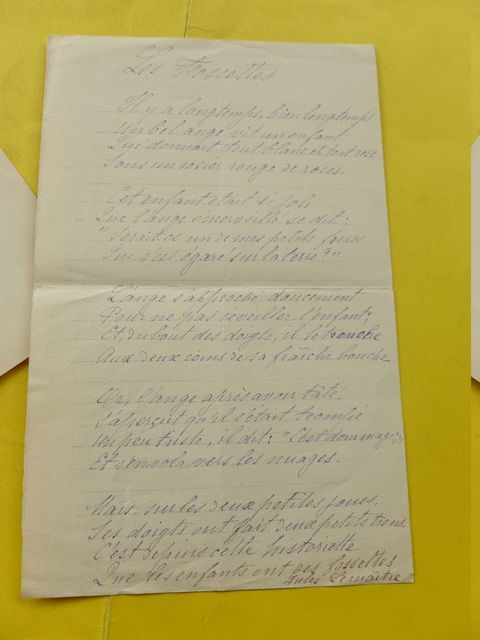 Les Fossettes
Il y a longtemps, bien longtemps
Un bel ange vit un enfant
Qui dormait tout blanc et tout rose
Sous un rosier rouge de roses.
Cet enfant était si joli
Que l'ange émerveillé se dit :
"Serait-ce un de mes petits frères
Qui s'est égaré sur la terre ?"
L'ange s'approche doucement
Pour ne pas réveiller l'enfant;
Et, du bout des doigts, il le touche
Aux deux coins de sa fraîche bouche
Or, l'ange après avoir tâté,
S'aperçut qu'il s'était trompé
Un peu triste, il dit : "C'est dommage"
Et s'envola vers les nuages.
Mais, sur les deux petites joues,
Ses doigts ont fait deux petits trous.
C'est depuis cette historiette
Que les enfants ont des fossettes
Jules Lemaître